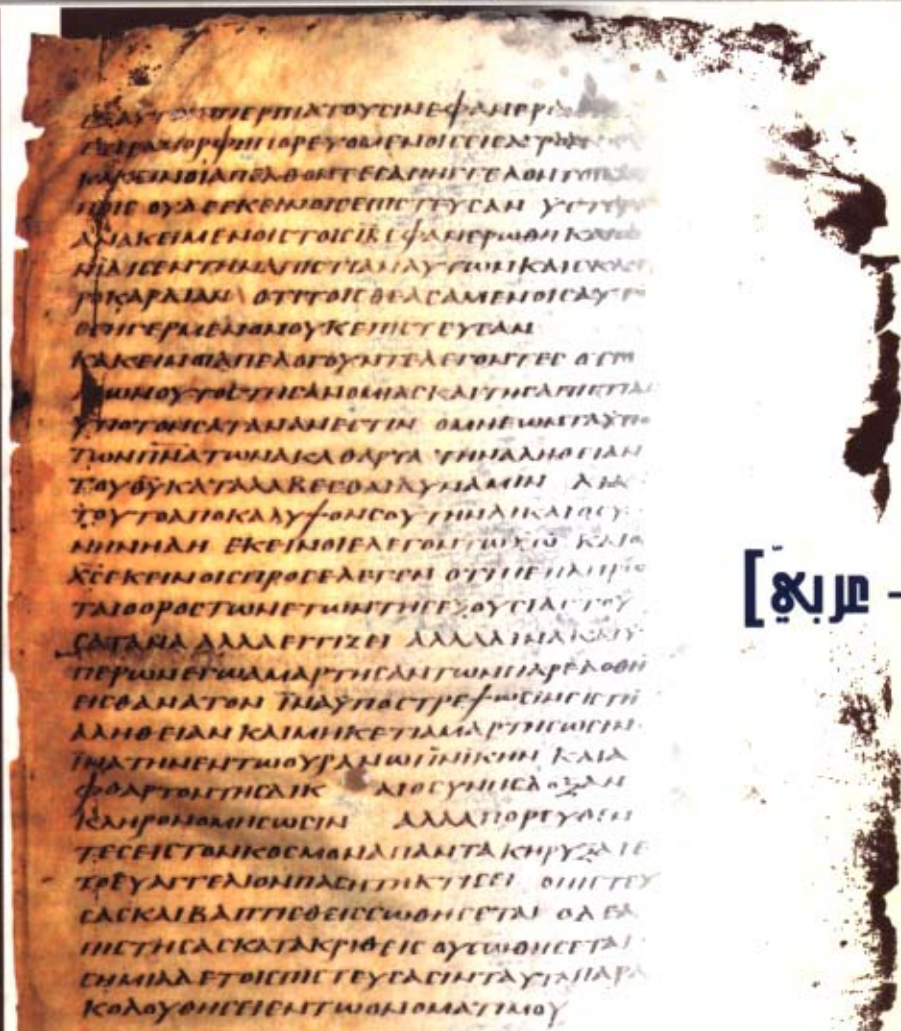 ΕΞΑΥΤΩΝΠΕΡΙΠΑΤΟΥCΙΝΕΦΑΝΕΡΩ
ΕΤΕΡΑΜΟΡΦΗΠΟΡΕΥΟΜΕΝΟΙCΕΙCΑΓΡ
ΚΑΚΕΙΝΟΙΑΠΕΛΘΟΝΤΕCΑΠΗΓΓΕΛΟΝΤΟΙC
ΠΟΙC ΟΥΔΕΕΚΕΙΝΟΙCΕΠΙCΤΕΥCΑΝ ΥCΤΕΡ
ΑΝΑΚΕΙΜΕΝΟΙCΤΟΙCΙΑΕΦΑΝΕΡΩΘΗ ΚΑΙΩ
ΝΙΔΙCΕΝΤΗΝΑΠΙCΤΙΑΝΑΥΤΩΝΚΑΙCΚΛΗ
ΡΟΚΑΡΔΙΑΝ ΟΤΙΤΟΙCΘΕΑCΑΜΕΝΟΙCΑΥΤΟ
ΕΓΗΓΕΡΜΕΝΟΝΟΥΚΕΠΙCΤΕΥCΑΝ
ΚΑΚΕΙΝΟΙΑΠΕΛΟΓΟΥΝΤΕΛΕΓΟΝΤΕC ΟΤΙΟ
ΑΙΩΝΟΥΤΟCΤΗCΑΝΟΜΙΑCΚΑΙΤΗCΑΠΙCΤΙΑC
ΥΠΟΤΟΝCΑΤΑΝΑΝΕCΤΙΝ ΟΜΗΕΩΝΤΑΥΠΟ
ΤΩΝΠΝΑΤΩΝΑΚΑΘΑΡΤΑ ΤΗΝΑΛΗΘΕΙΑΝ
ΤΟΥΘΥΚΑΤΑΛΑΒΕCΘΑΙΔΥΝΑΜΙΝ ΔΙΑ
ΤΟΥΤΟΑΠΟΚΑΛΥΨΟΝCΟΥΤΗΝΔΙΚΑΙΟCΥ
ΝΗΝΗΔΗ ΕΚΕΙΝΟΙΕΛΕΓΟΝΤΩΧΩ ΚΑΙΟ
ΧCΕΚΕΙΝΟΙCΠΡΟCΕΛΕΓΕΝ ΟΤΙΠΕΠΛΗΡΩ
ΤΑΙΟΟΡΟCΤΩΝΕΤΩΝΤΗCΕΞΟΥCΙΑCΤΟΥ
CΑΤΑΝΑ ΑΛΛΑΕΓΓΙΖΕΙ ΑΛΛΑΔΙΝΑΚΑΙΥ
ΠΕΡΩΝΕΓΩΑΜΑΡΤΗCΑΝΤΩΝΠΑΡΕΔΟΘΗ
ΕΙCΘΑΝΑΤΟΝ ΙΝΑΥΠΟCΤΡΕΨΩCΙΝΕΙCΤΗ
ΑΛΗΘΕΙΑΝ ΚΑΙΜΗΚΕΤΙΑΜΑΡΤΗCΩCΙΝ
ΙΝΑΤΗΝΕΝΤΩΟΥΡΑΝΩΠΝΙΚΗΝ ΚΑΙΑ
ΦΘΑΡΤΟΝΤΗCΔΙΚ ΑΙΟCΥΝΗCΔΟΞΑΝ
ΚΛΗΡΟΝΟΜΗCΩCΙΝ ΑΛΛΑΠΟΡΕΥΘΕΝ
ΤΕCΕΙCΤΟΝΚΟCΜΟΝΑΠΑΝΤΑ ΚΗΡΥΞΑΤΕ
ΤΟΕΥΑΓΓΕΛΙΟΝΠΑCΗΤΗΚΤΙCΕΙ ΟΠΙCΤΕΥ
CΑCΚΑΙΒΑΠΤΙCΘΕΙCCΩΘΗCΕΤΑΙ ΟΔΕΑ
ΠΙCΤΗCΑCΚΑΤΑΚΡΙΘΕΙC ΟΥCΩΘΗCΕΤΑΙ
CΗΜΙΑΔΕΤΟΙCΠΙCΤΕΥCΑCΙΝΤΑΥΤΑΠΑΡΑ
ΚΟΛΟΥΘΗCΕΙΕΝΤΩΟΝΟΜΑΤΙΜΟΥ
- عربي]